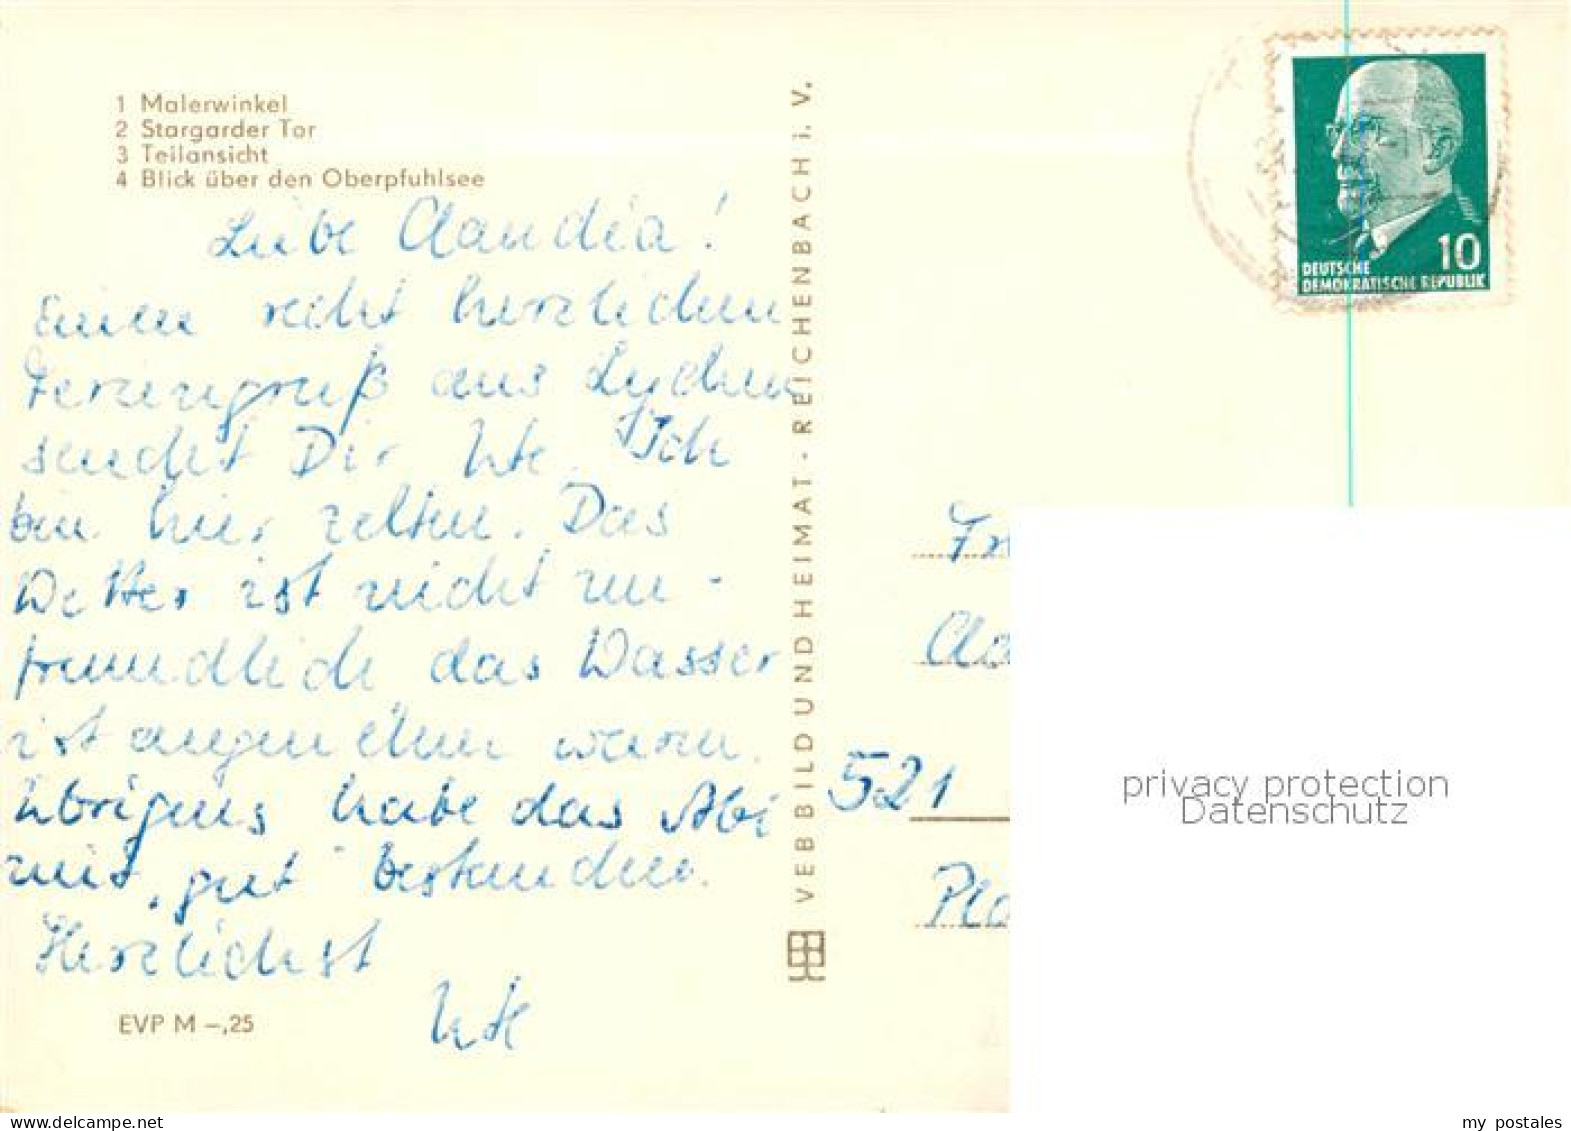 1 Malerwinkel
2 Stargarder Tor
3 Teilansicht
4 Blick über den Oberpfuhlsee
Liebe Claudia!
Einen recht herzlichen
Feriengruß aus Lychen
sendet Dir Ute. Ich
bin hier zelten. Das
Wetter ist nicht un-
freundlich das Wasser
ist angenehm warm.
Übrigens habe das Abi
mit "gut" bestanden.
Herzlichst
Ute
EVP M –,25
VEB BILD UND HEIMAT · REICHENBACH i. V.
10
DEUTSCHE
DEMOKRATISCHE REPUBLIK
Fr
Cla
521
Pla
privacy protection
Datenschutz
my postales